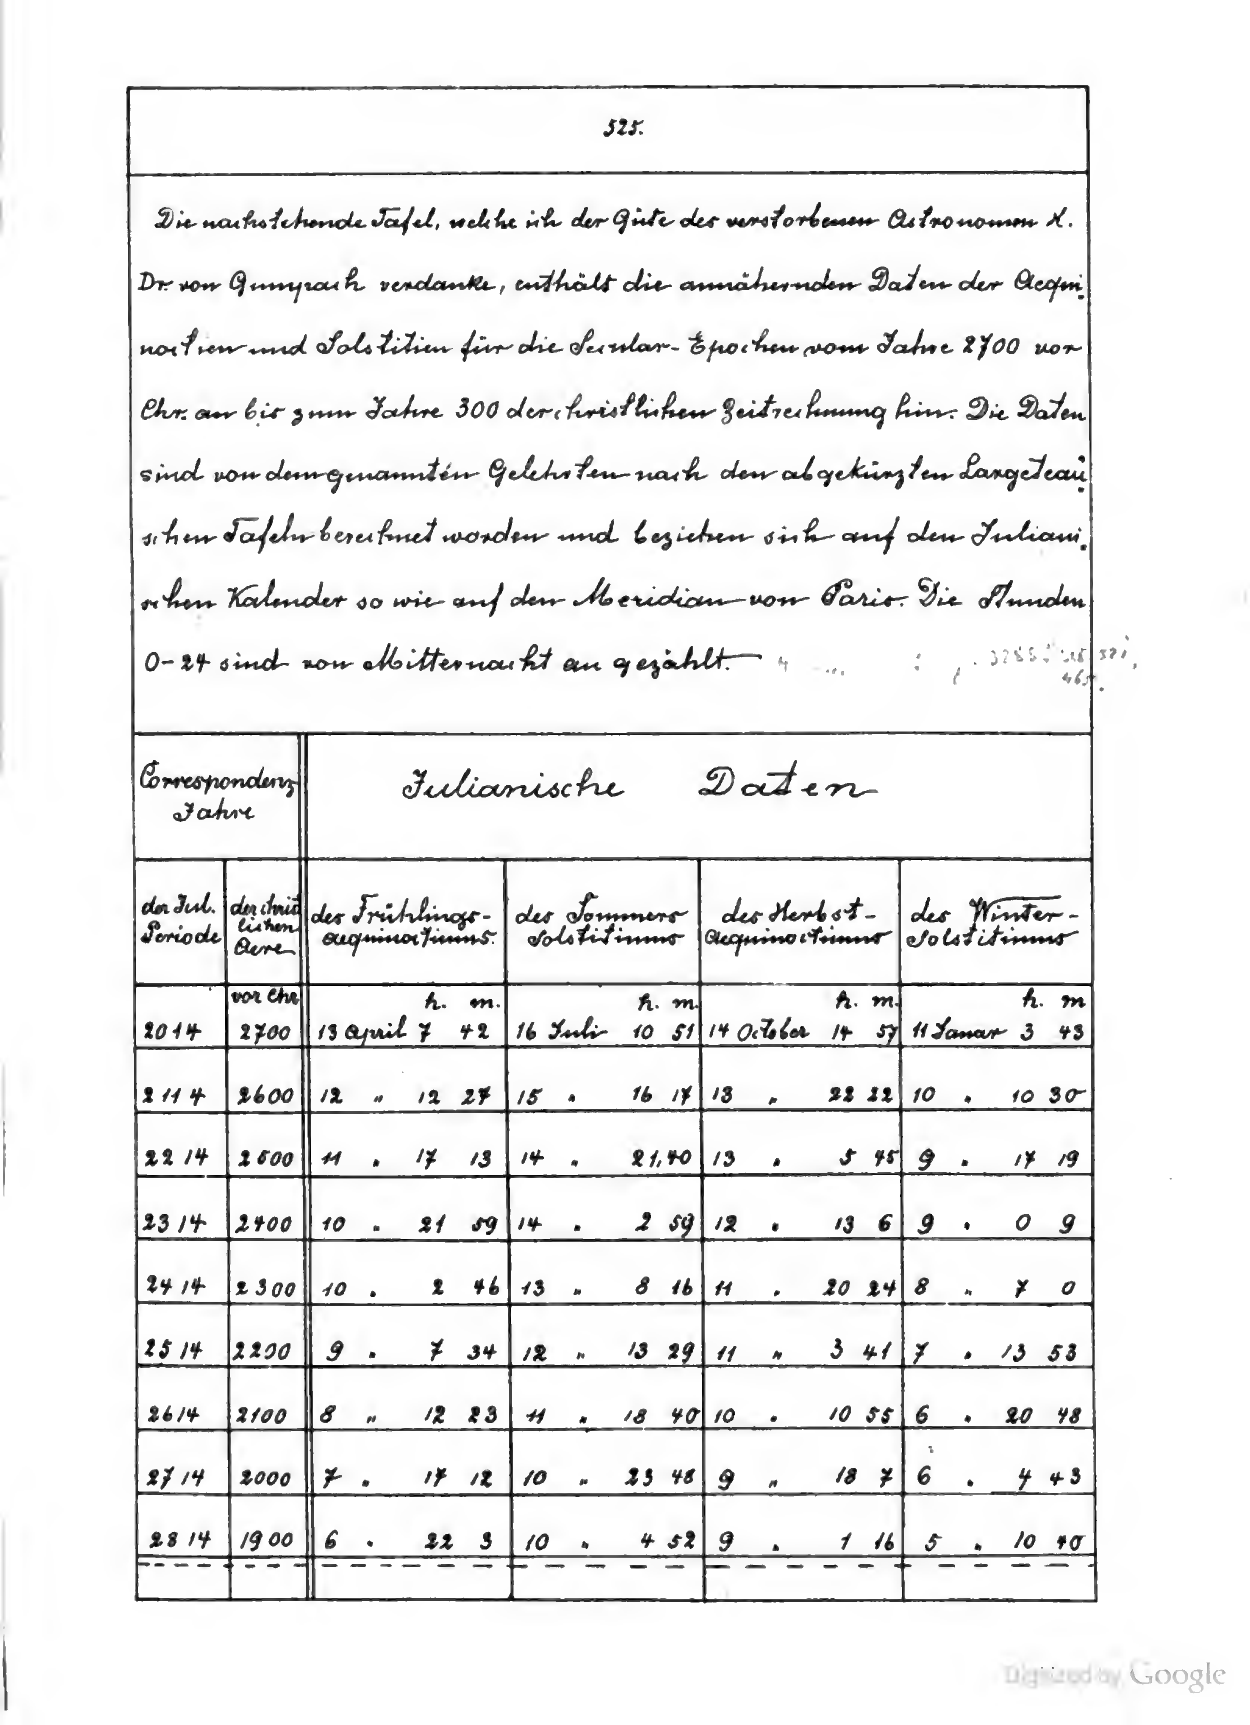 525.
Die nachstehende Tafel, welche ich der Güte des verstorbenen Astronomen H.
Dr. von Gumpach verdanke, enthält die annähernden Daten der Aequi,
noctien und Solstitien für die Secular-Epochen vom Jahre 2700 vor
Chr. an bis zum Jahre 300 der christlichen Zeitrechnung hin. Die Daten
sind von dem genannten Gelehrten nach den abgekürzten Largeteau,
schen Tafeln berechnet worden und beziehen sich auf den Juliani,
schen Kalender so wie auf den Meridian von Paris. Die Stunden
0-24 sind von Mitternacht an gezählt.
Correspondenz Julianische Daten
Jahre
der Jul. der christ des Frühlings- des Sommers des Herbst- des Winter-
Periode lichen aequinoctiums. Solstitiums Aequinoctiums Solstitiums
Aere
vor Chr h. m. h. m. h. m. h. m
2014 2700 13 April 7 42 16 Juli 10 51 14 October 14 57 11 Januar 3 43
2114 2600 12 „ 12 27 15 „ 16 17 13 „ 22 22 10 „ 10 30
2214 2500 11 „ 17 13 14 „ 21,40 13 „ 5 45 9 „ 17 19
2314 2400 10 „ 21 59 14 „ 2 59 12 „ 13 6 9 „ 0 9
2414 2300 10 „ 2 46 13 „ 8 16 11 „ 20 24 8 „ 7 0
2514 2200 9 „ 7 34 12 „ 13 29 11 „ 3 41 7 „ 13 53
2614 2100 8 „ 12 23 11 „ 18 40 10 „ 10 55 6 „ 20 48
2714 2000 7 „ 17 12 10 „ 23 48 9 „ 18 7 6 „ 4 43
2814 1900 6 „ 22 3 10 „ 4 52 9 „ 1 16 5 „ 10 40
Digitized by Google